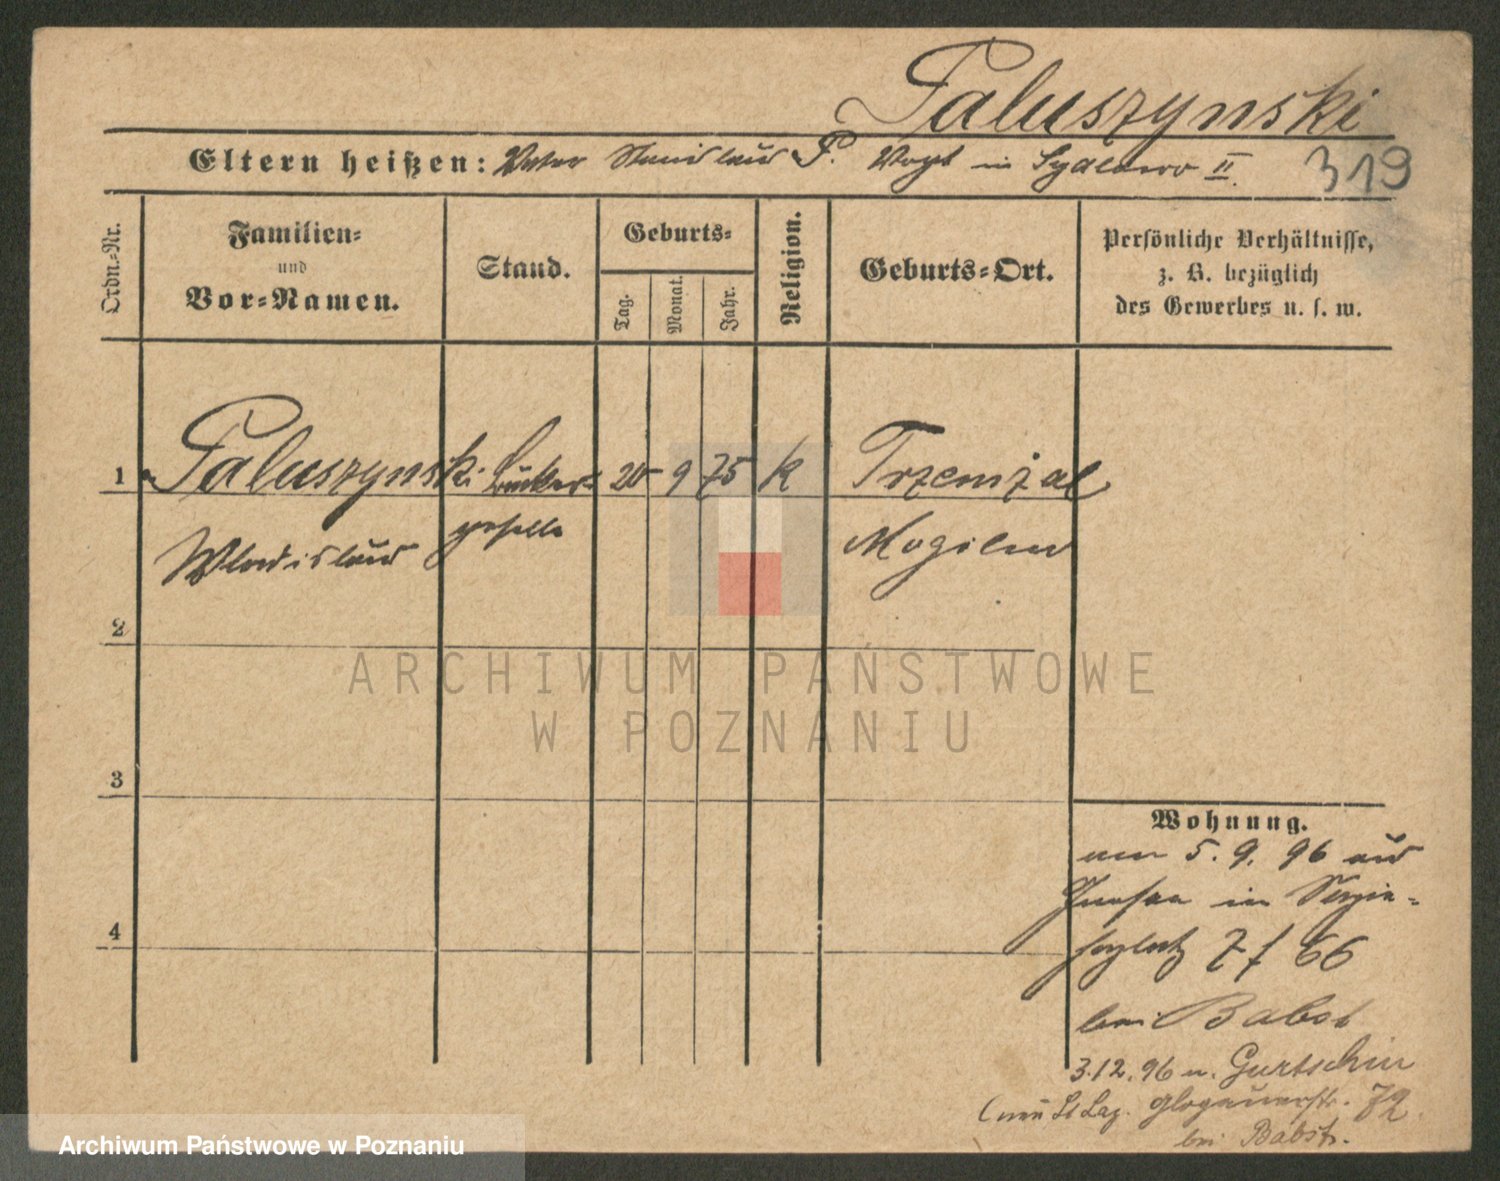 Paluszynski
Eltern heißen: Vater Stanislaus P. Vogt in II.
319
Ordn.-Nr.
Familien-
und
Vor-Namen.
Stand.
Geburts-
Tag.
Monat.
Jahr.
Religion.
Geburts-Ort.
Persönliche Verhältnisse,
z. B. bezüglich
des Gewerbes u. s. w.
1 Paluszynski Bäcker- 9 75 k Trzemżal
geselle Mogilno
Wladislaus
2
3
4
Wohnung.
am 5. 9. 96 aus
Gnesen in
7 f 66
bei Babst
3.12.96 n. Gurtschin
St Laz. Glogauerstr. 72
bei Babst.
ARCHIWUM PAŃSTWOWE
W POZNANIU
Archiwum Państwowe w Poznaniu